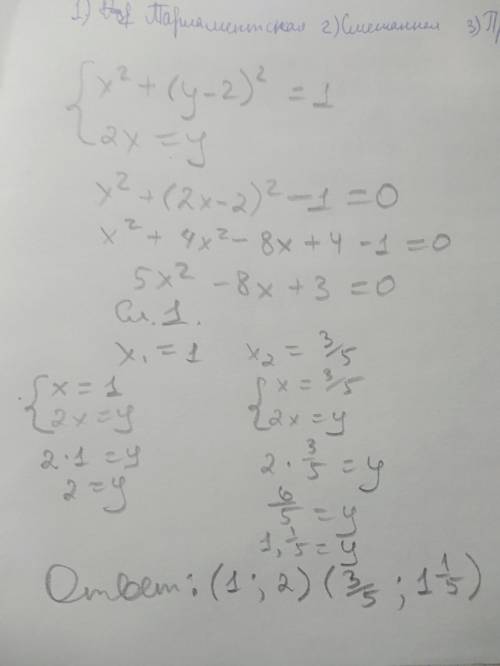 1) Парламентская 2) Смешанная 3) П
{ x² + (y-2)² = 1
2x = y
x² + (2x-2)² - 1 = 0
x² + 4x² - 8x + 4 - 1 = 0
5x² - 8x + 3 = 0
Сл. 1.
x₁ = 1 x₂ = 3/5
{ x = 1
2x = y
2·1 = y
2 = y
{ x = 3/5
2x = y
2 · 3/5 = y
6/5 = y
1, 1/5 = y
Ответ: (1; 2) (3/5; 1 1/5)